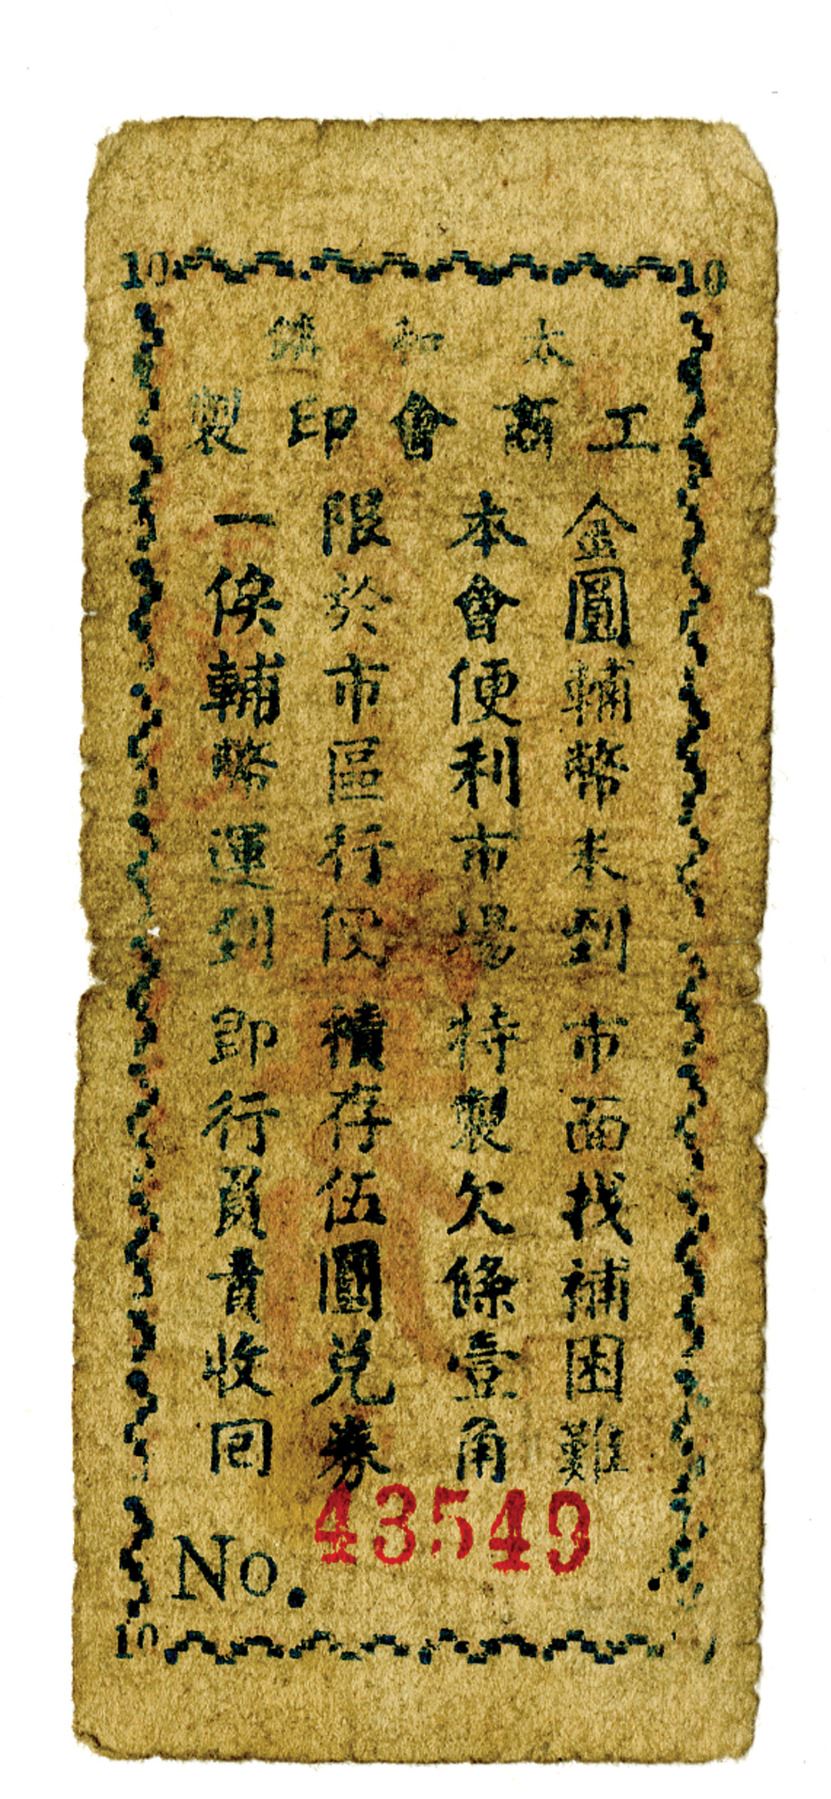 10 10
太和鎮
工商會印製
金圓輔幣未到市面找補困難
本會便利市場特製欠條壹角
限於市區行使積存伍圓兌券
一俟輔幣運到即行負責收回
No. 43549
10